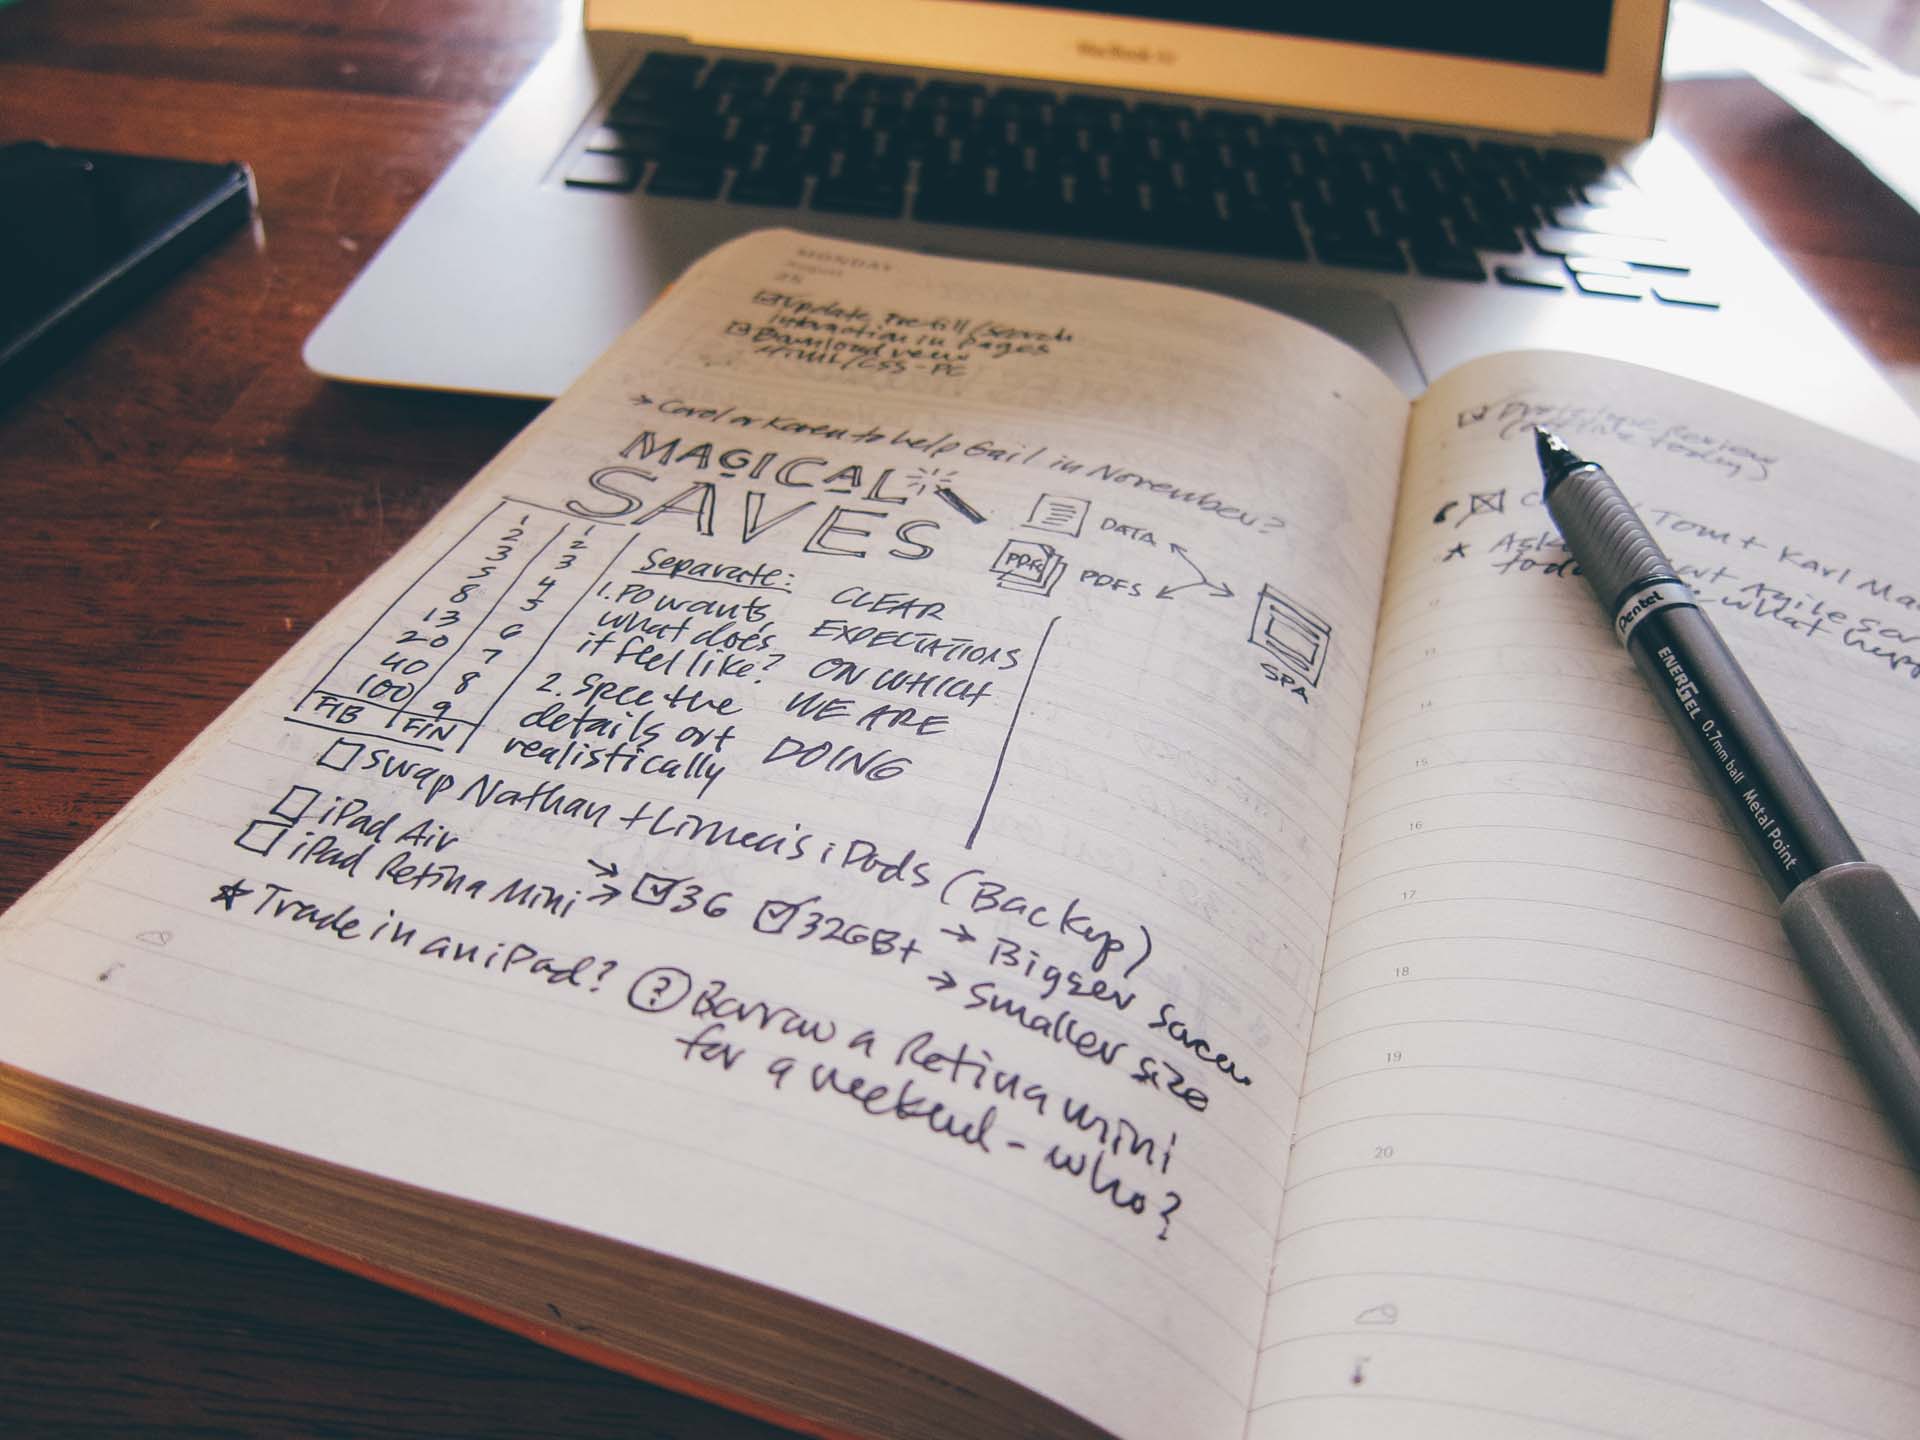 MacBook Air
MONDAY
August
25
Update Prefill/search
interaction in pages
Download
HTML/CSS - PC
→ Carol or Karen to help Gail in November?
MAGICAL
SAVES
1
2
3
5
8
13
20
40
100
FIB
1
2
3
4
5
6
7
8
9
FIN
Separate:
1. PO wants,
what does
it feel like?
2. Spec the
details out
realistically
CLEAR
EXPECTATIONS
ON WHICH
WE ARE
DOING
DATA
PDFs
PDFS
SPA
Swap Nathan + Linnea's iPods (Backup)
iPad Air
iPad Retina Mini → 3G 32GB+
→ Bigger screen
→ Smaller size
★ Trade in an iPad?
? Borrow a Retina mini
for a weekend - who?
Review
today
Tom + Karl
Ask
Agile
what
14
15
16
17
18
19
20
Pentel
ENERGEL 0.7mm ball Metal Point